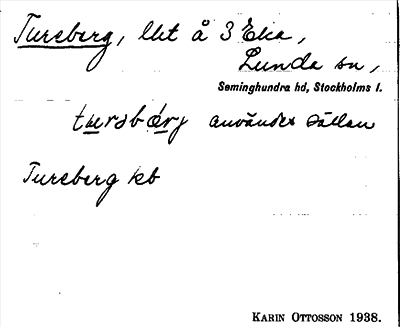 Tureberg, lht å 3 Eka,
Lunda sn,
Seminghundra hd, Stockholms l.
tursbärj användes sällan
Tureberg kb
KARIN OTTOSSON 1938.